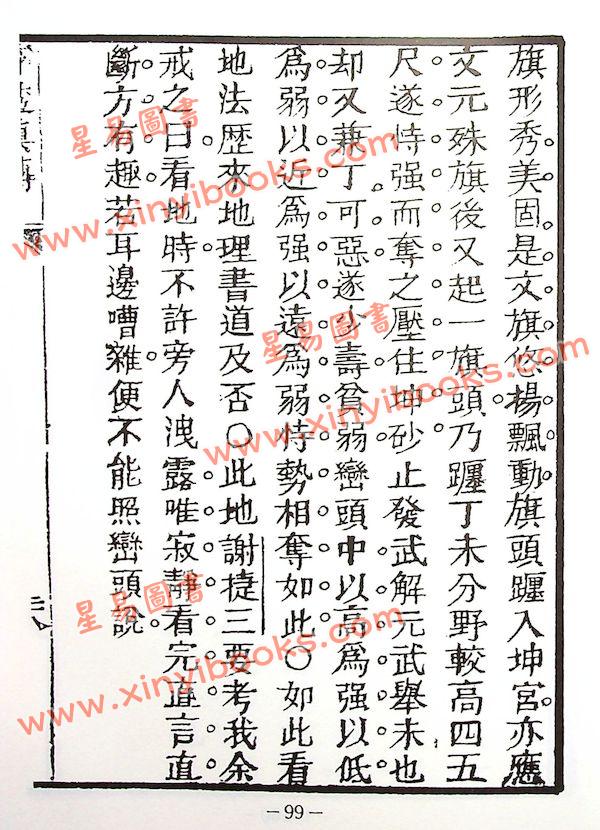 旗形秀美固是文旗悠揚飄動旗頭躔入坤宮亦應
文元殊旗後又起一旗頭乃躔丁未分野較高四五
尺遂恃强而奪之壓住坤砂止發武解元武舉未也
却又兼丁可惡遂少壽貧弱巒頭中以高爲强以低
爲弱以近爲强以遠爲弱恃勢相奪如此〇如此看
地法歷來地理書道及否〇此地謝捷三要考我余
戒之曰看地時不許旁人洩露唯寂靜看完直言直
斷方有趣若耳邊嘈雜便不能照巒頭說
二八
-99-
星易圖書
www.xinyibooks.com
星易圖書
www.xinyibooks.com
星易圖書
www.xinyibooks.com